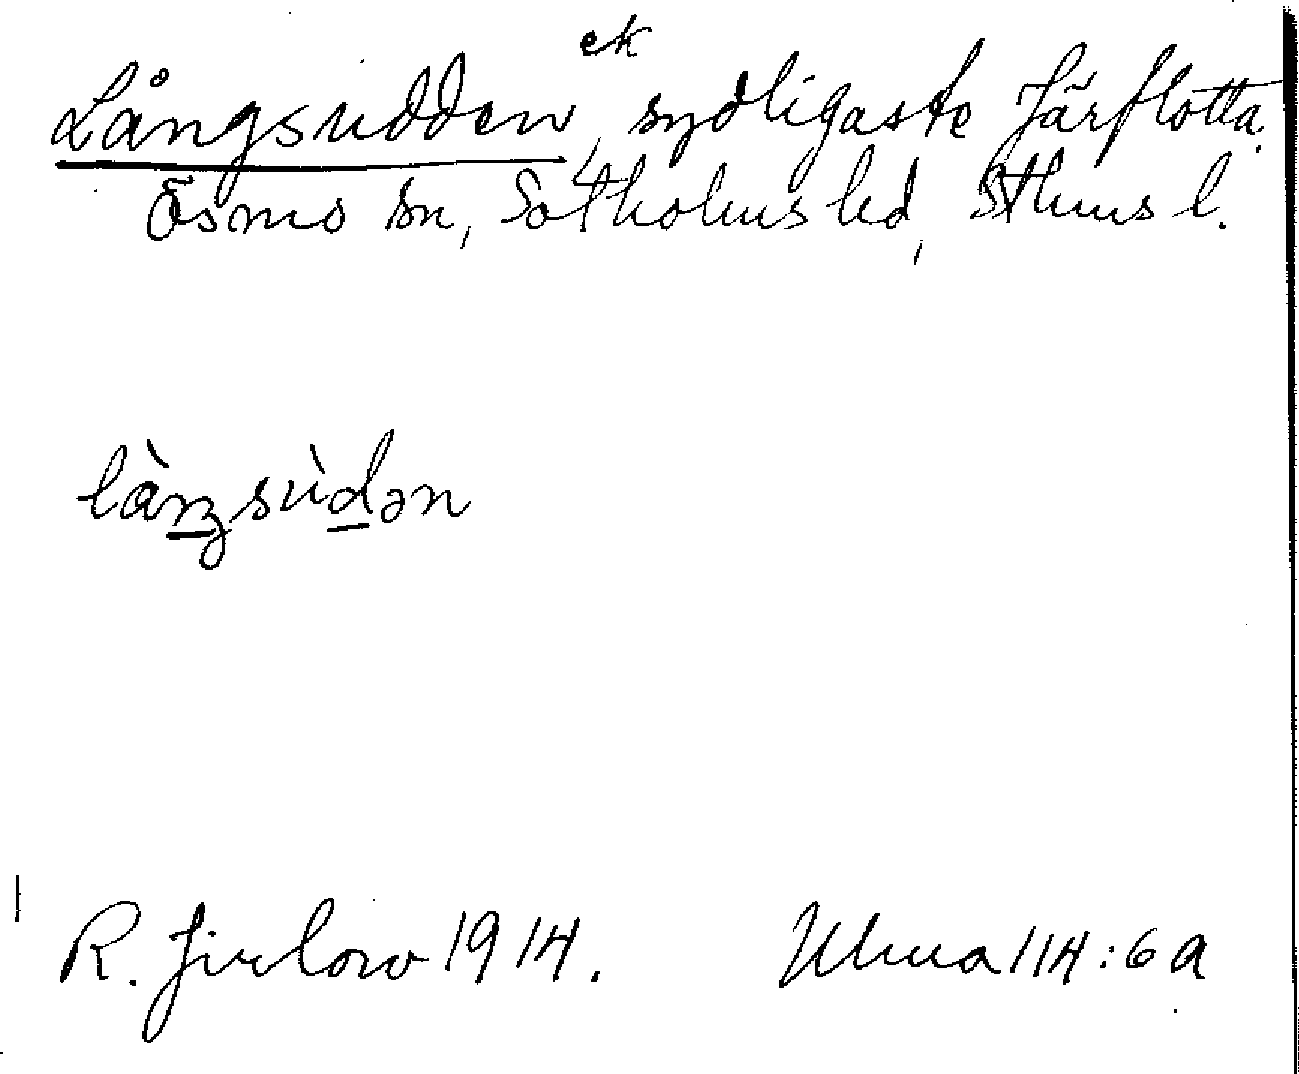 Långsudden, ek sydligaste Järflotta.
Ösmo sn, Sotholms hd, Sthms l.
làŋsùdən
R. Jirlow 1914. Ulma 114:6a